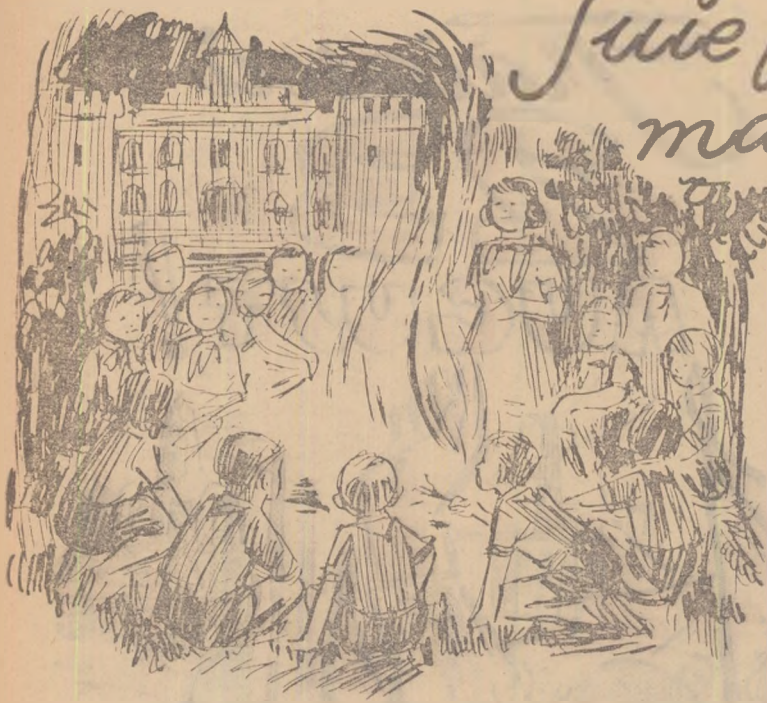 Suie
ma